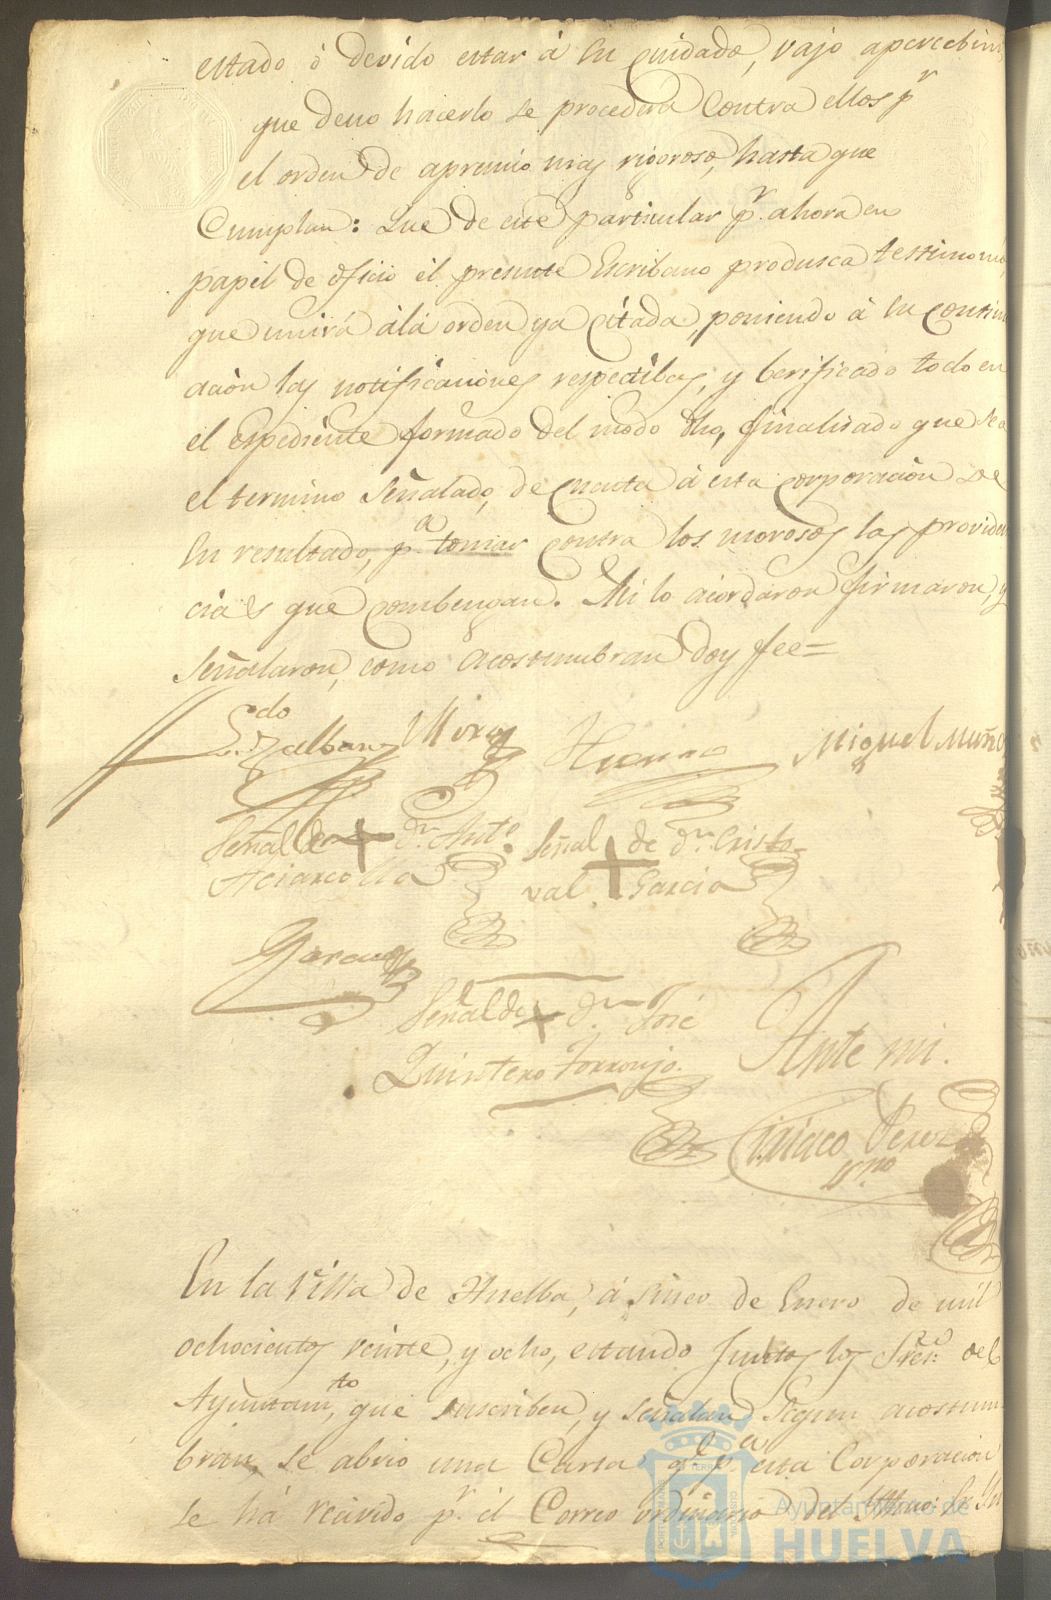 estado ò devido estar á su cuidado, vajo apercebim
que deno hacerlo se procederá Contra ellos pr
el orden de apremio mas rigoroso, hasta que
Cumplan: Que de este particular pr. ahora en
papel de oficio el presente Escribano produsca testimonio
que unirá álá orden ya Citada, poniendo á su contin
ación las notificaciones respectibas, y berificado todo en
el espediente formado del modo dho, finalisado que sea
el termino Señalado, de cuenta á esta corporación de
su resultado, pa. tomar contra los morosos las providen
cias que combengan. Asi lo acordaron firmaron, y
Señalaron, como acostumbran doy fee=
Mora Miguel Muño
Señal de + dn. Anto. Señal + de dn. Cristo-
val. Garcia
Garcia
Señal de + dn. José
Quintero Torronjo. Ante mi.
Ciriaco Perez
En la Villa de Huelba, á Sinco de Enero de mil
ochocientos veinte, y ocho, estando Juntos los Sres. del
Ayuntamto, que suscriben, y señalan Segun acostum
bran, se abrio una Carta ql. pa. esta Corporacion
se há recivido pr. él Correo ordinario del
Ayuntamiento de
HUELVA